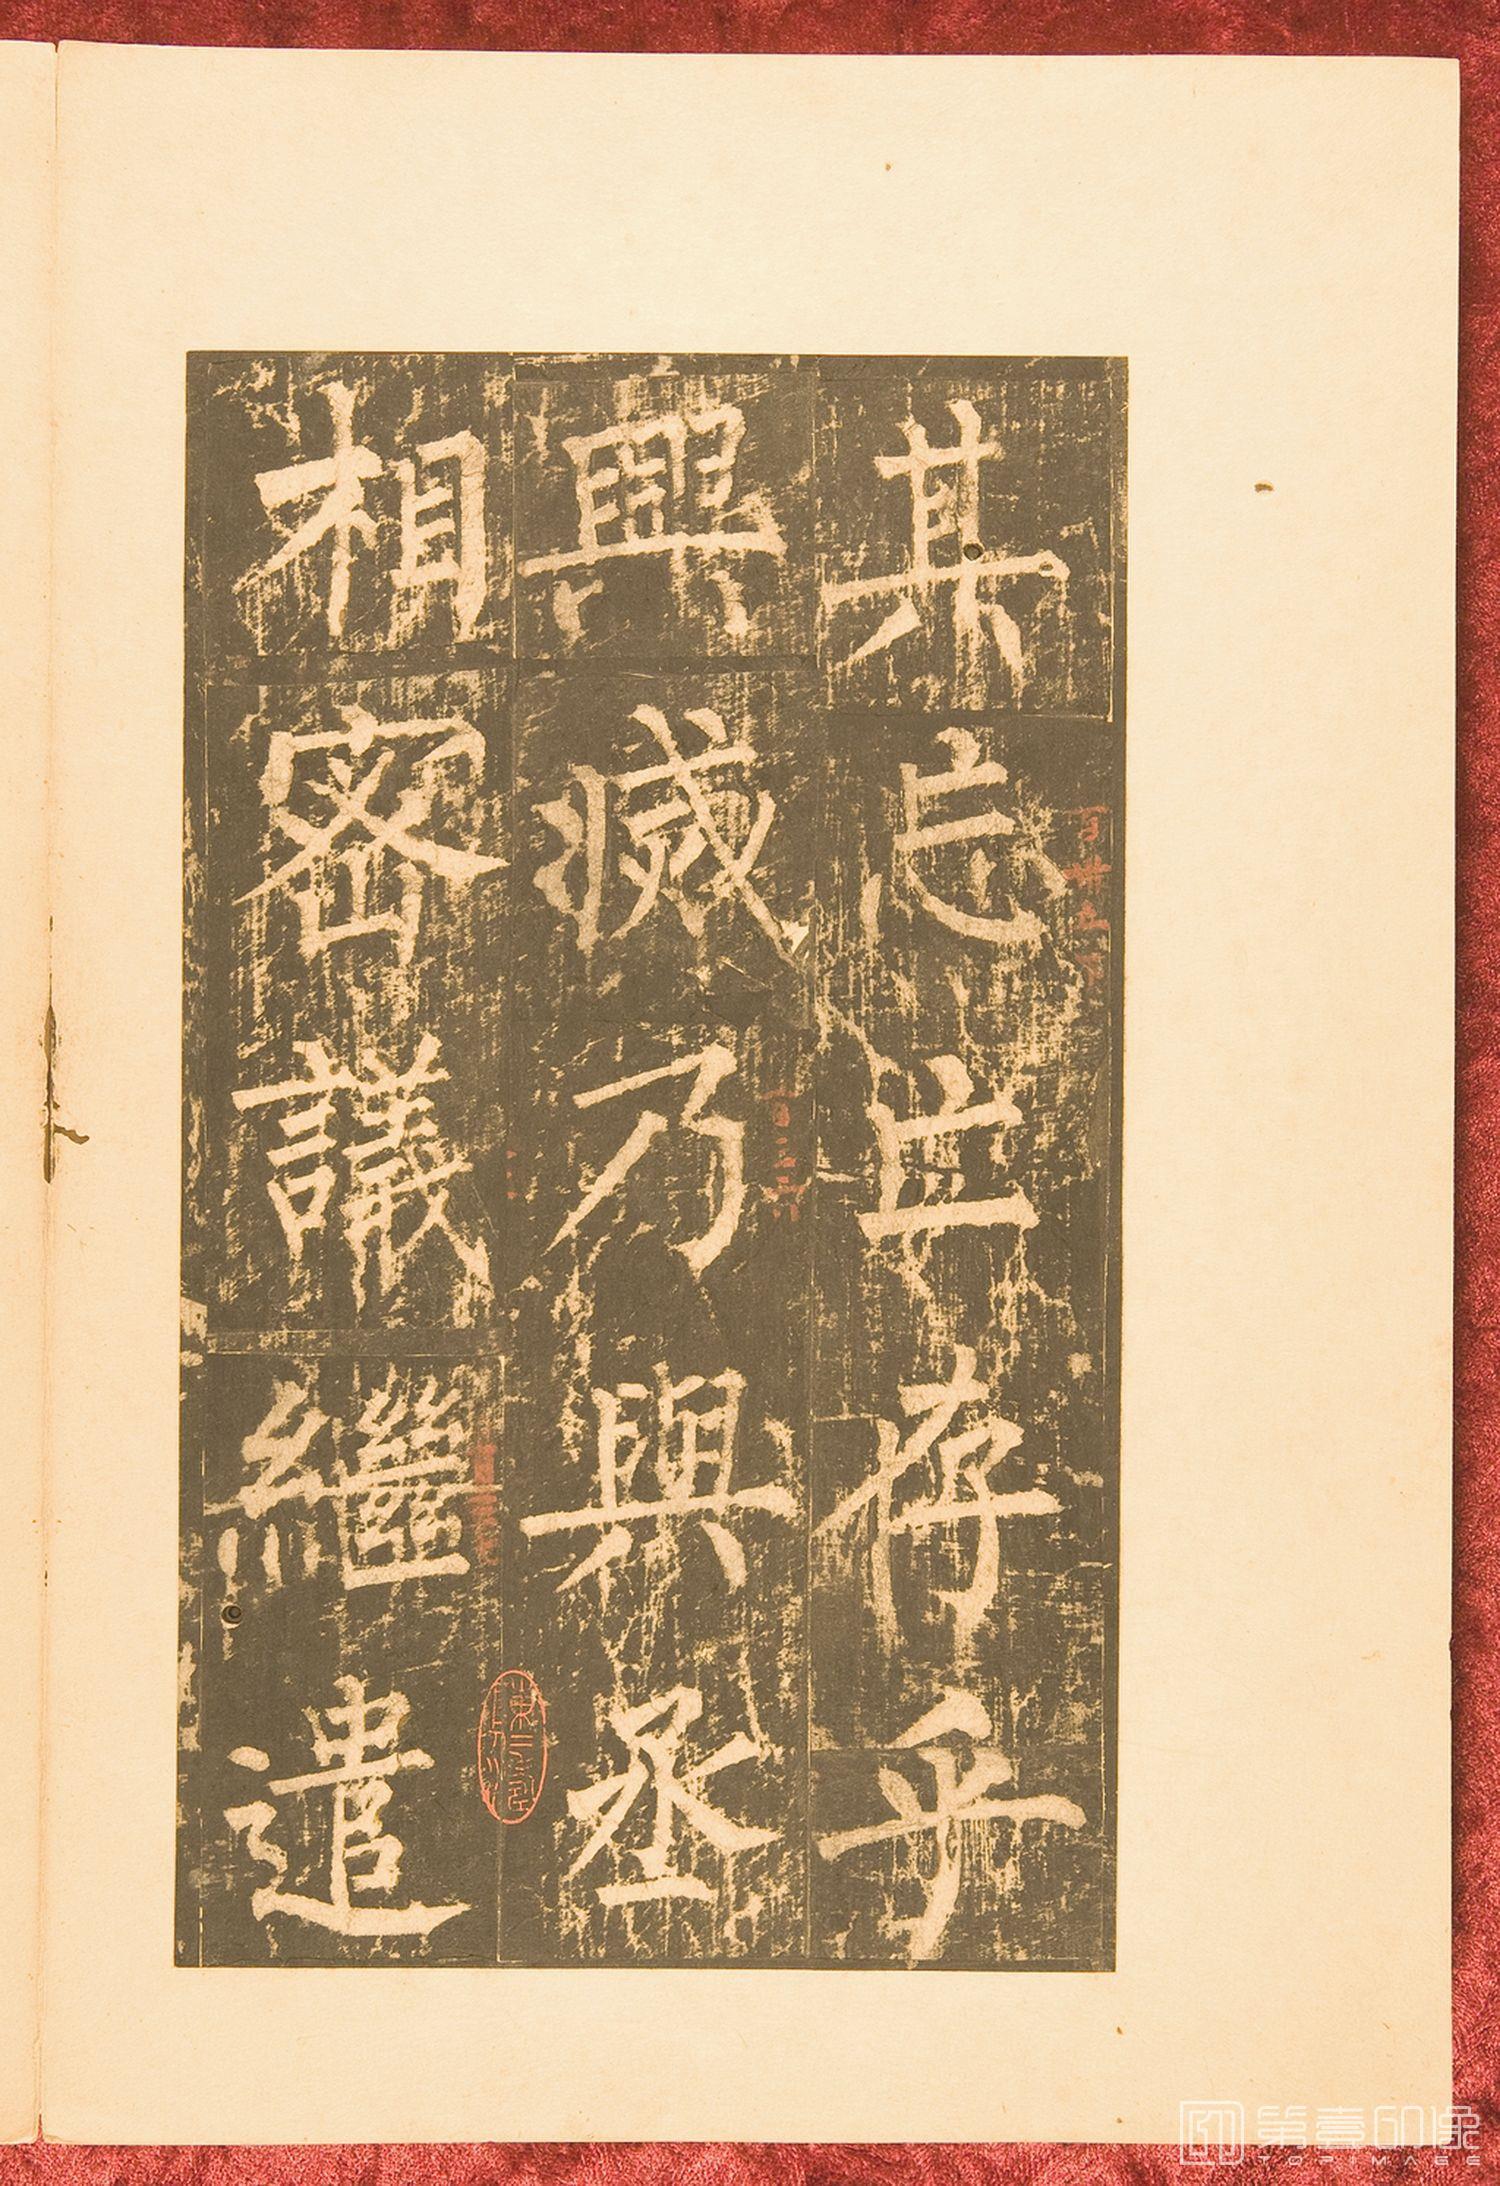 其忘亡存乎
興滅乃與丞
相密議繼遣
第壹印像
TOPIMAGE